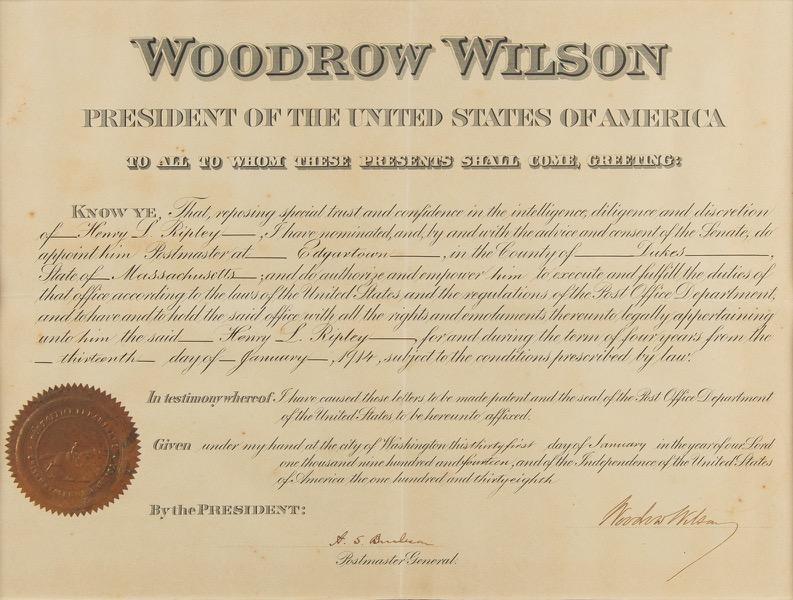 WOODROW WILSON
PRESIDENT OF THE UNITED STATES OF AMERICA
TO ALL TO WHOM THESE PRESENTS SHALL COME, GREETING:
KNOW YE, That, reposing special trust and confidence in the intelligence, diligence and discretion
of Henry L Ripley, I have nominated, and, by and with the advice and consent of the Senate, do
appoint him Postmaster at Edgartown, in the County of Dukes,
State of Massachusetts; and do authorize and empower him to execute and fulfill the duties of
that office according to the laws of the United States and the regulations of the Post Office Department,
and to have and to hold the said office with all the rights and emoluments thereunto legally appertaining
unto him the said Henry L. Ripley, for and during the term of four years from the
thirteenth day of January, 1914, subject to the conditions prescribed by law.
In testimony whereof I have caused these letters to be made patent and the seal of the Post Office Department
of the United States to be hereunto affixed.
Given under my hand at the city of Washington this thirty first day of January in the year of our Lord
one thousand nine hundred and fourteen, and of the Independence of the United States
of America the one hundred and thirty eighth.
By the PRESIDENT:
Woodrow Wilson
A. S. Burleson
Postmaster General.